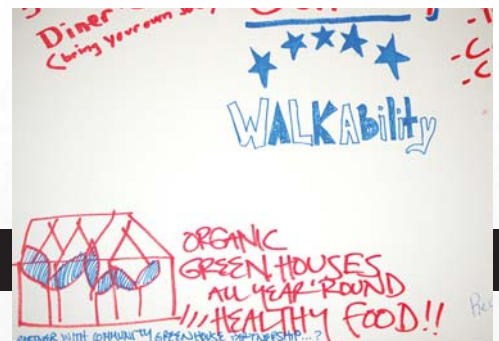 Diner
(bring your own
WALKAbility
ORGANIC
GREEN HOUSES
ALL YEAR 'ROUND
HEALTHY FOOD!!
PARTNER WITH COMMUNITY GREENHOUSE PARTNERSHIP...?